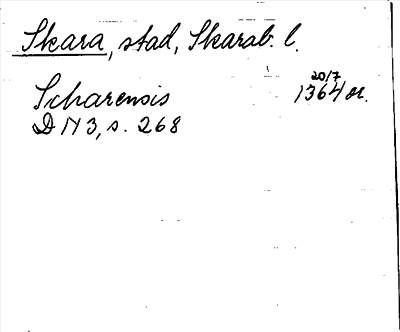 Skara, stad, Skarab. l.
20/7
Scharensis 1364 or.
D N 3, s. 268